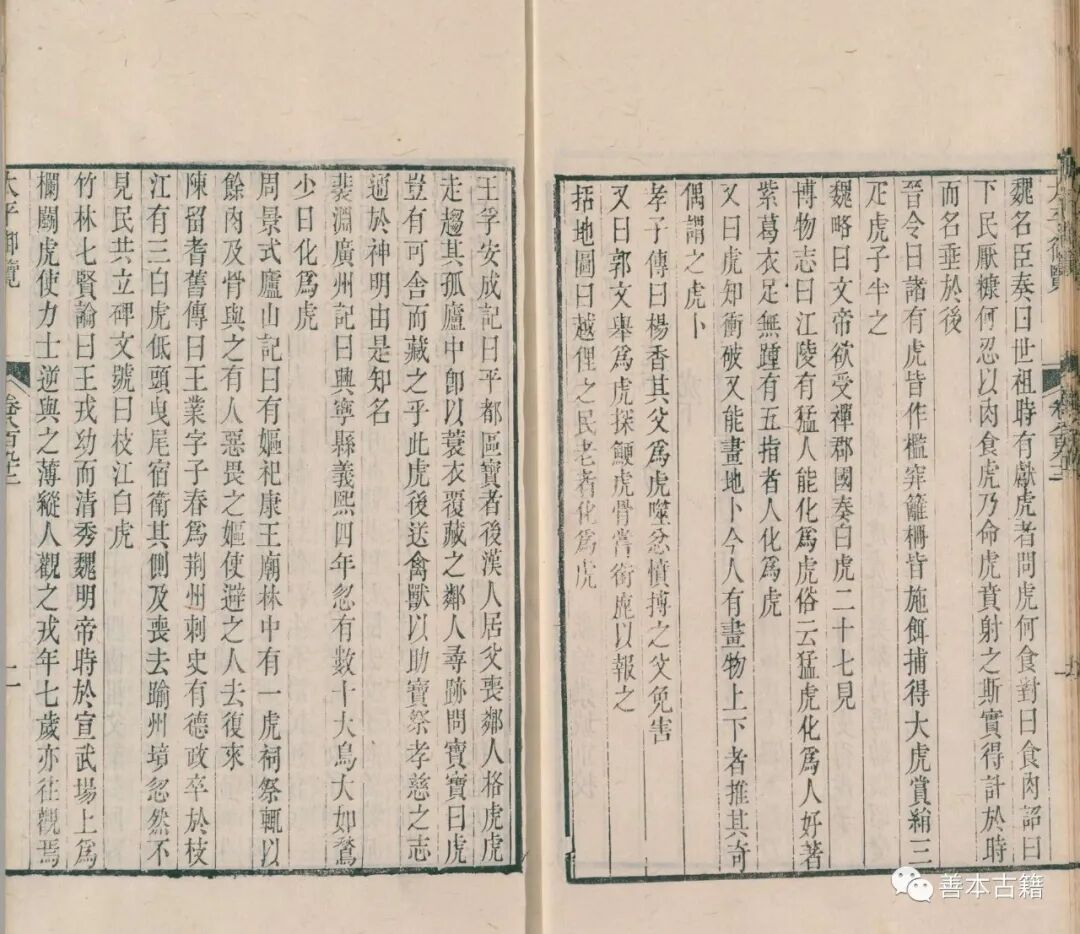 魏名臣奏曰世祖時有獻虎者問虎何食對曰食肉詔曰
下民厭糠何忍以肉食虎乃命虎賁射之斯實得計於時
而名垂於後
晉令曰諸有虎皆作檻穽籬柵皆施餌捕得大虎賞絹三
疋虎子半之
魏略曰文帝欲受禪郡國奏白虎二十七見
博物志曰江陵有猛人能化爲虎俗云猛虎化爲人好著
紫葛衣足無踵有五指者人化爲虎
又曰虎知衝破又能畫地卜今人有畫物上下者推其奇
偶謂之虎卜
孝子傳曰楊香其父爲虎噬忿憤搏之父免害
又曰郭文舉爲虎探鯁虎骨嘗銜鹿以報之
括地圖曰越俚之民老者化爲虎
王孚安成記曰平都區寶者後漢人居父喪鄰人格虎虎
走趨其孤廬中卽以蓑衣覆藏之鄰人尋跡問寶寶曰虎
豈有可舍而藏之乎此虎後送禽獸以助寶祭孝慈之志
通於神明由是知名
裴淵廣州記曰興寧縣義熙四年忽有數十大鳥大如鶩
少日化爲虎
周景式廬山記曰有嫗祀康王廟林中有一虎祠祭輒以
餘肉及骨與之有人惡畏之嫗使避之人去復來
陳留耆舊傳曰王業字子春爲荆州刺史有德政卒於枝
江有三白虎低頭曳尾宿衛其側及喪去踰州境忽然不
見民共立碑文號曰枝江白虎
竹林七賢論曰王戎幼而清秀魏明帝時於宣武場上爲
欄鬭虎使力士逆與之薄縱人觀之戎年七歲亦往觀焉
太平御覽 卷八百九十二 二
善本古籍